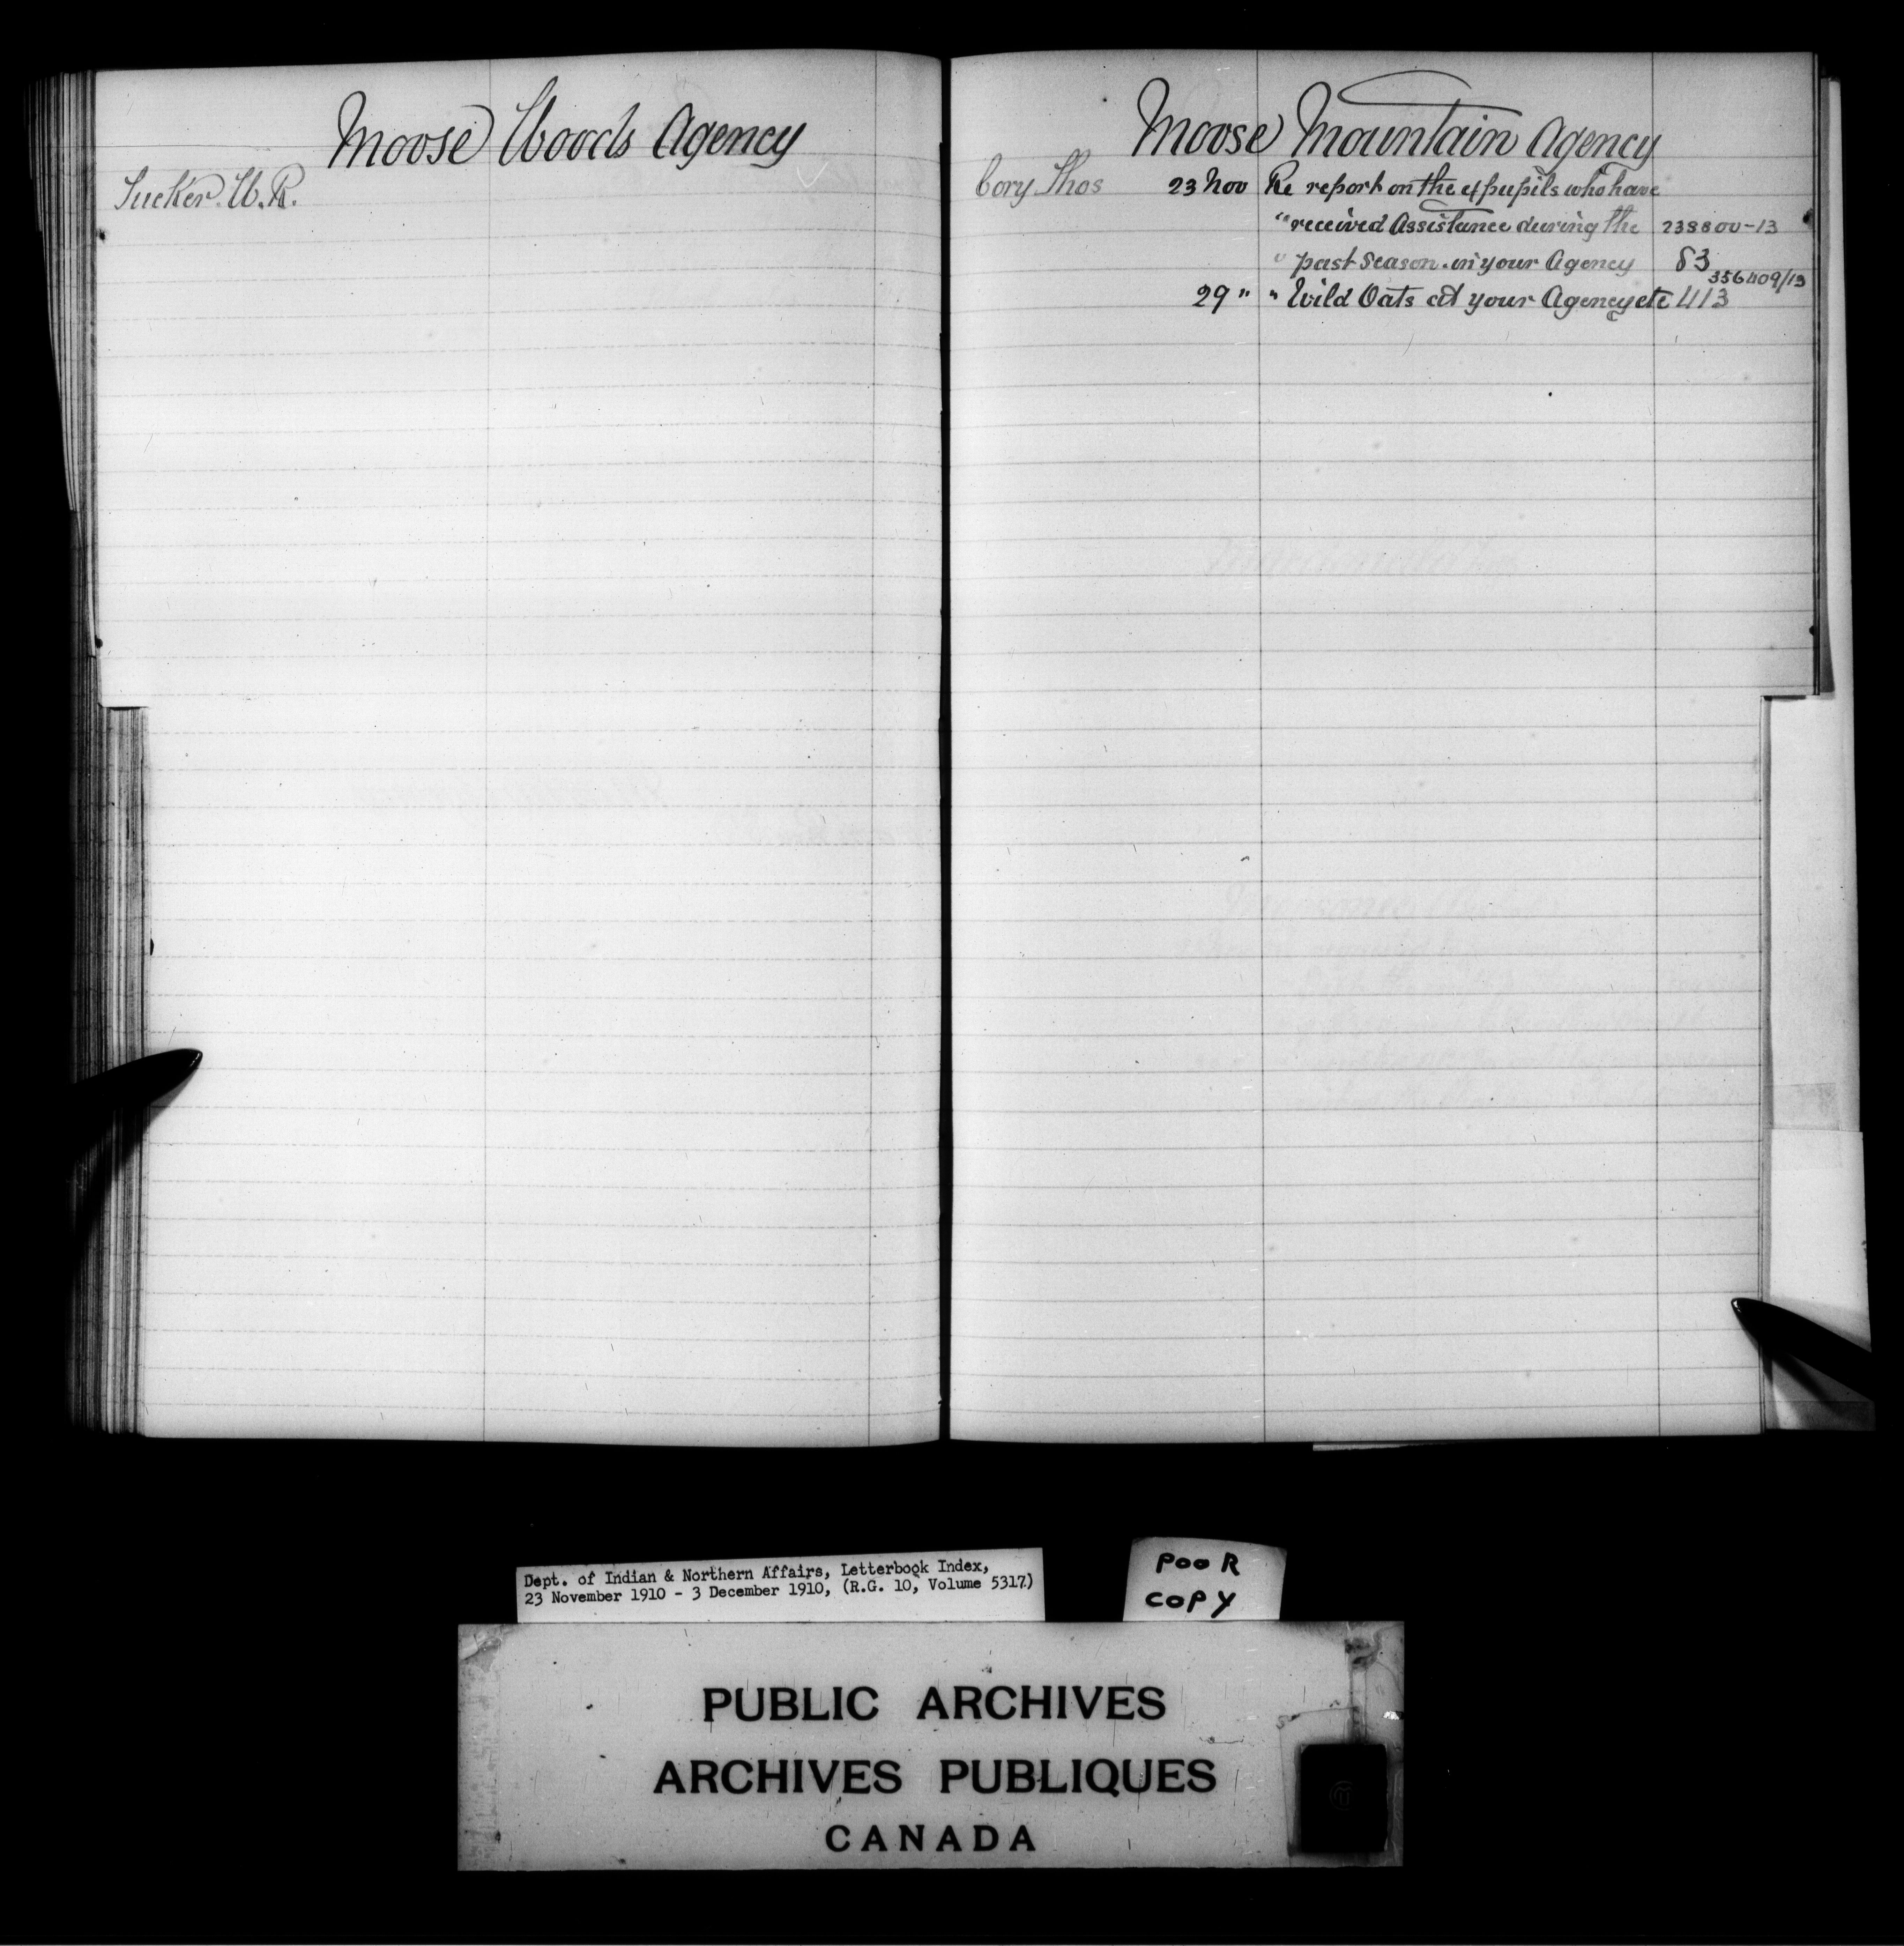 Moose Woods Agency
Tucker W.R.
Moose Mountain Agency
Cory Thos 23 Nov Re report on the ex pupils who have
" received Assistance during the 238800-13
" past season in your Agency 83
356409/13
29 " " Wild Oats at your Agency etc 413
Dept. of Indian & Northern Affairs, Letterbook Index,
23 November 1910 - 3 December 1910, (R.G. 10, Volume 5317)
POOR
COPY
PUBLIC ARCHIVES
ARCHIVES PUBLIQUES
CANADA